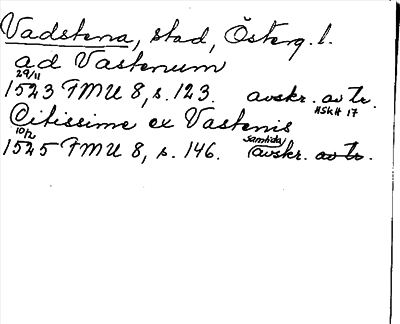 Vadstena, stad, Österg. l.
ad Vastenum
29/11
1523 FMU 8, s. 123. avskr. av tr.
HSkH 17
Citissime ex Vastenis
10/2
1525 FMU 8, s. 146. (samtida) avskr. av tr.